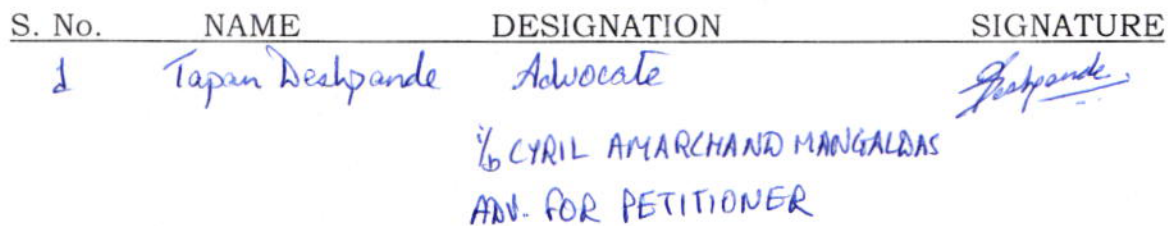 S. No. NAME DESIGNATION SIGNATURE
1 Tapan Deshpande Advocate Deshpande
i/b CYRIL AMARCHAND MANGALDAS
ADV. FOR PETITIONER